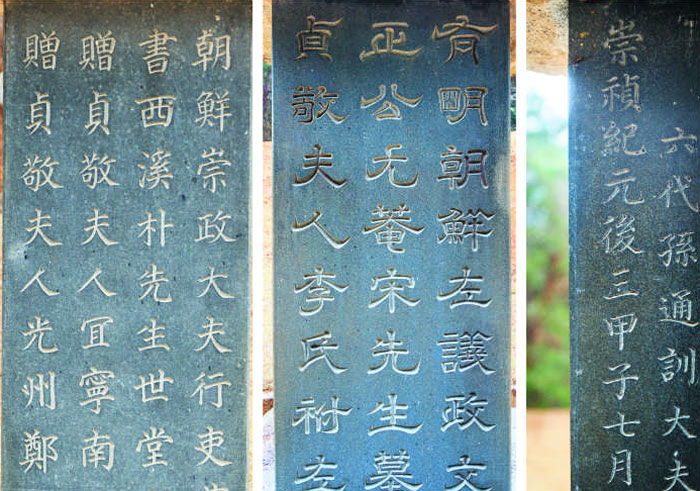 朝鮮崇政大夫行吏
書西溪朴先生世堂
贈貞敬夫人冝寧南
贈貞敬夫人光州鄭
有明朝鮮左議政文
正公尤菴宋先生墓
貞敬夫人李氏祔左
六代孫通訓大夫
崇禎紀元後三甲子七月